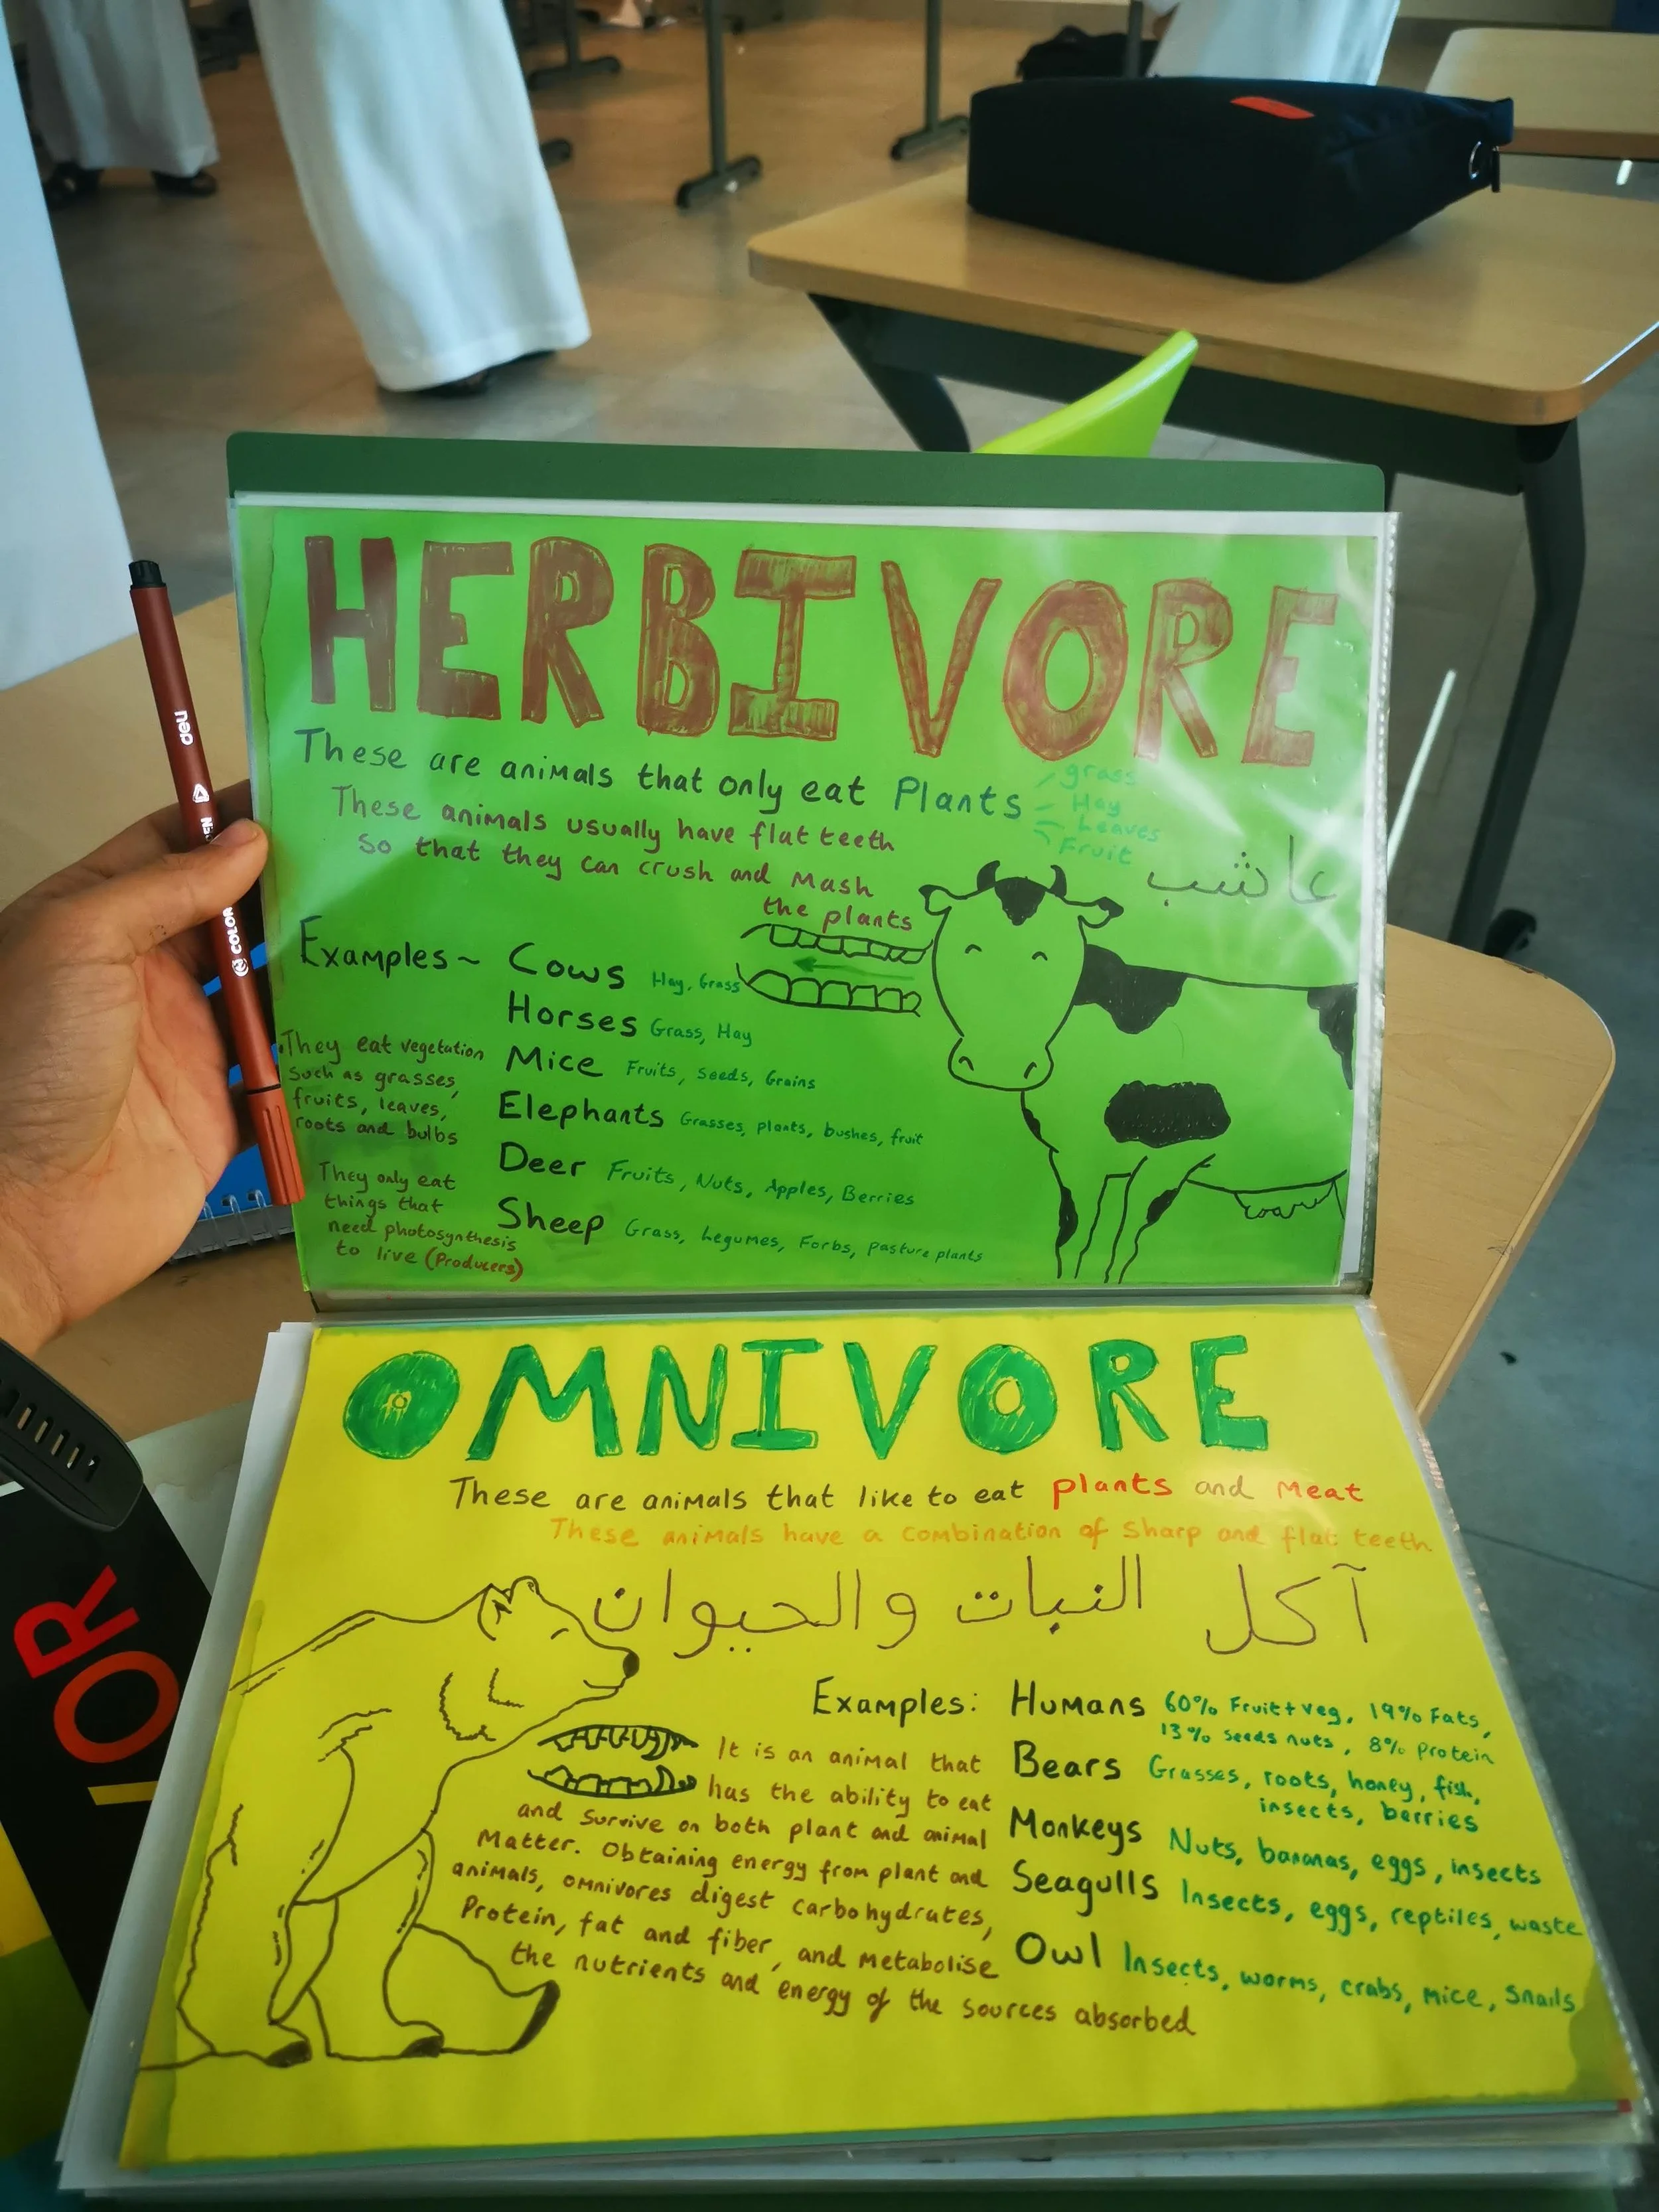 HERBIVORE
These are animals that only eat Plants
grass
Hay
Leaves
Fruit
These animals usually have flat teeth
So that they can crush and Mash
the plants
عاشب
Examples~
Cows Hay, Grass
Horses Grass, Hay
Mice Fruits, Seeds, Grains
Elephants Grasses, plants, bushes, fruit
Deer Fruits, Nuts, Apples, Berries
Sheep Grass, Legumes, Forbs, pasture plants
They eat vegetation
Such as grasses,
fruits, leaves,
roots and bulbs
They only eat
things that
need photosynthesis
to live (Producers)
deli
COLOR
OMNIVORE
These are animals that like to eat plants and Meat
These animals have a combination of Sharp and flat teeth
آكل النبات والحيوان
Examples:
Humans 60% Fruit+veg, 19% Fats,
13% seeds nuts, 8% Protein
Bears Grasses, roots, honey, fish,
insects, berries
Monkeys Nuts, bananas, eggs, insects
Seagulls Insects, eggs, reptiles, waste
Owl Insects, worms, crabs, mice, snails
It is an animal that
has the ability to eat
and Survive on both plant and animal
Matter. Obtaining energy from plant and
animals, omnivores digest carbohydrates,
Protein, fat and fiber, and Metabolise
the nutrients and energy of the sources absorbed
IOR